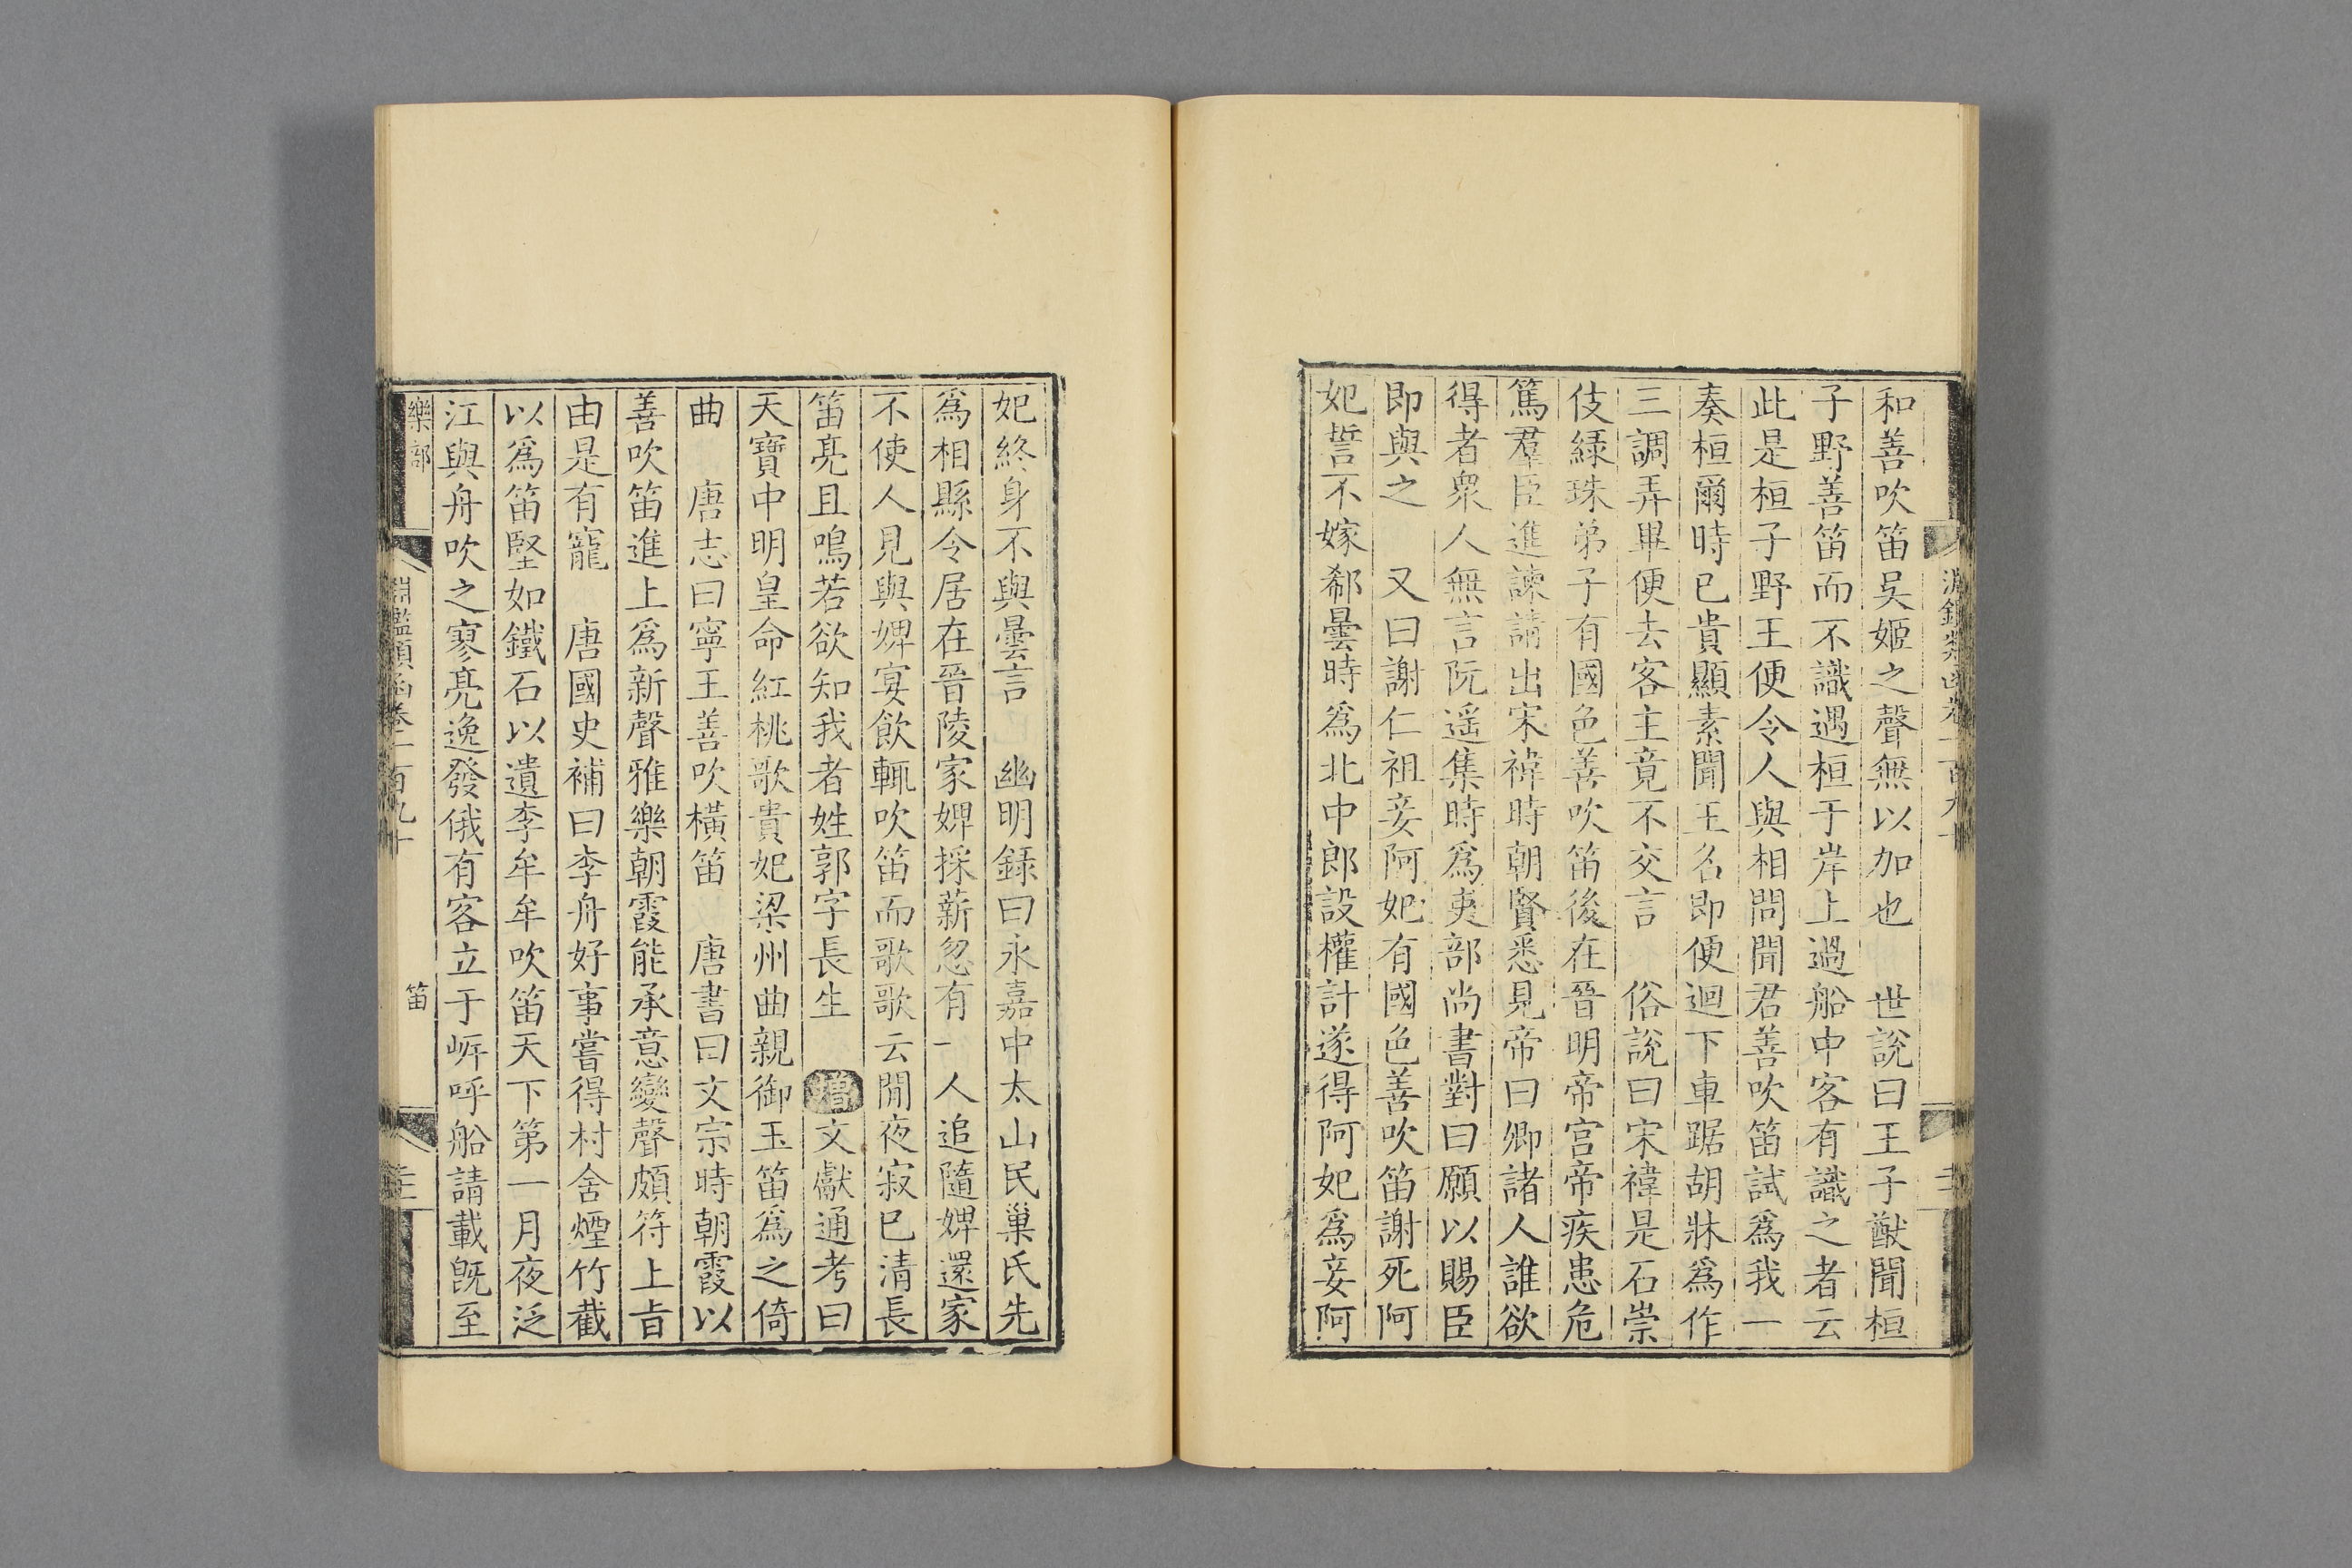 和善吹笛吳姬之聲無以加也　世說曰王子猷聞桓
子野善笛而不識遇桓于岸上過船中客有識之者云
此是桓子野王便令人與相問聞君善吹笛試爲我一
奏桓爾時已貴顯素聞王名即便迴下車踞胡牀爲作
三調弄畢便去客主竟不交言　俗說曰宋褘是石崇
伎緑珠弟子有國色善吹笛後在晉明帝宫帝疾患危
篤羣臣進諫請出宋褘時朝賢悉見帝曰卿諸人誰欲
得者衆人無言阮遥集時爲吏部尚書對曰願以賜臣
即與之　又曰謝仁祖妾阿妃有國色善吹笛謝死阿
妃誓不嫁郗曇時爲北中郎設權計遂得阿妃爲妾阿
妃終身不與曇言　幽明録曰永嘉中太山民巢氏先
爲相縣令居在晉陵家婢採薪忽有一人追隨婢還家
不使人見與婢宴飲輒吹笛而歌歌云閒夜寂已清長
笛亮且鳴若欲知我者姓郭字長生　增文獻通考曰
天寶中明皇命紅桃歌貴妃梁州曲親御玉笛爲之倚
曲　唐志曰寧王善吹橫笛　唐書曰文宗時朝霞以
善吹笛進上爲新聲雅樂朝霞能承意變聲頗符上㫖
由是有寵　唐國史補曰李舟好事嘗得村舍煙竹截
以爲笛堅如鐵石以遺李牟牟吹笛天下第一月夜泛
江與舟吹之寥亮逸發俄有客立于㟁呼船請載旣至
樂部　淵鑑類函卷一百九十　笛